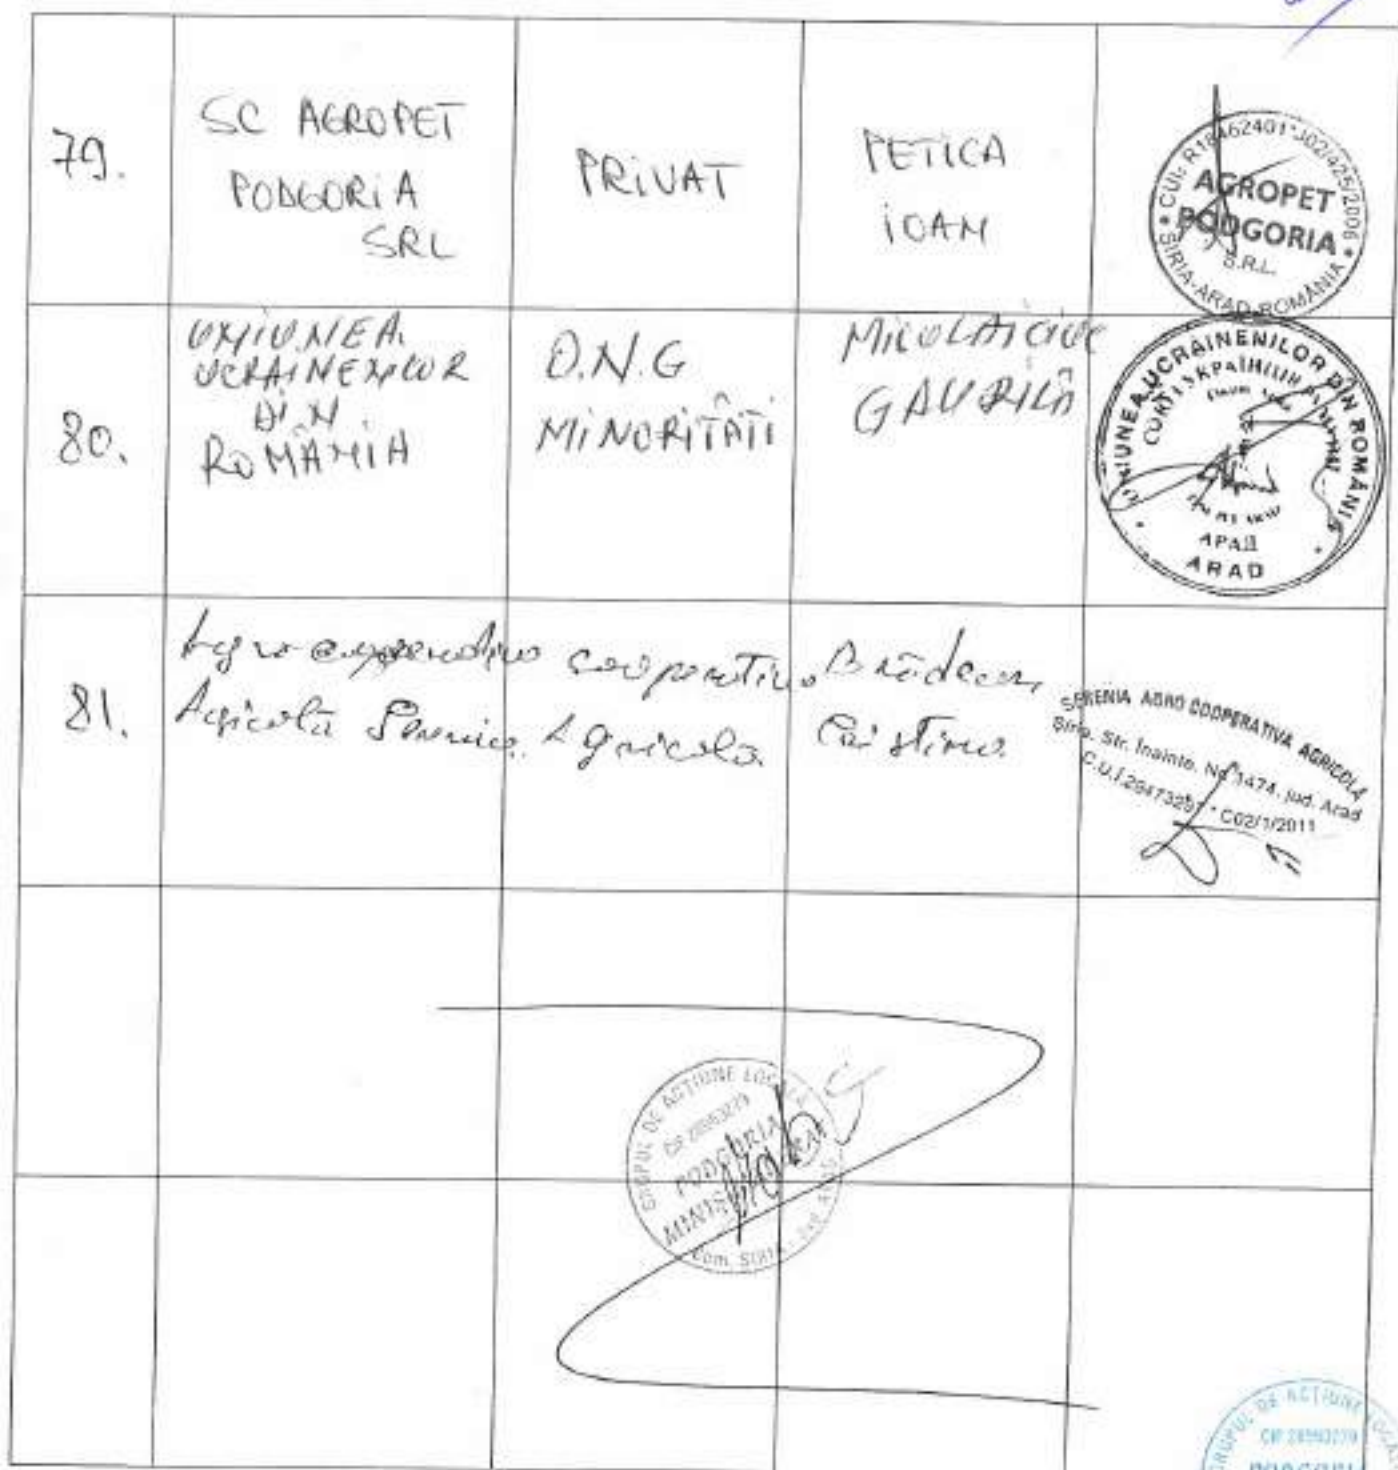 79.
SC AGROPET
PODGORIA
SRL
PRIVAT
PETICA
IOAN
CUI: R18462401*J02/425/2006
AGROPET
PODGORIA
S.R.L.
ȘIRIA-ARAD-ROMÂNIA
80.
UNIUNEA
UCRAINENILOR
DIN
ROMÂNIA
O.N.G
MINORITĂȚI
MICOLAICIUC
GAVRILĂ
UNIUNEA UCRAINENILOR DIN ROMÂNIA
АРАД
ARAD
81.
Agricolă
Cooperativa
Agricola
Cristina
SERENIA AGRO COOPERATIVA AGRICOLĂ
Șiria, Str. Înainte, Nr. 1474, jud. Arad
C02/1/2011
GRUPUL DE ACȚIUNE LOCALĂ
CIF 28953279
PODGORIA
Com. Șiria - Jud. Arad
GRUPUL DE ACȚIUNE LOCALĂ
CIF 28953279